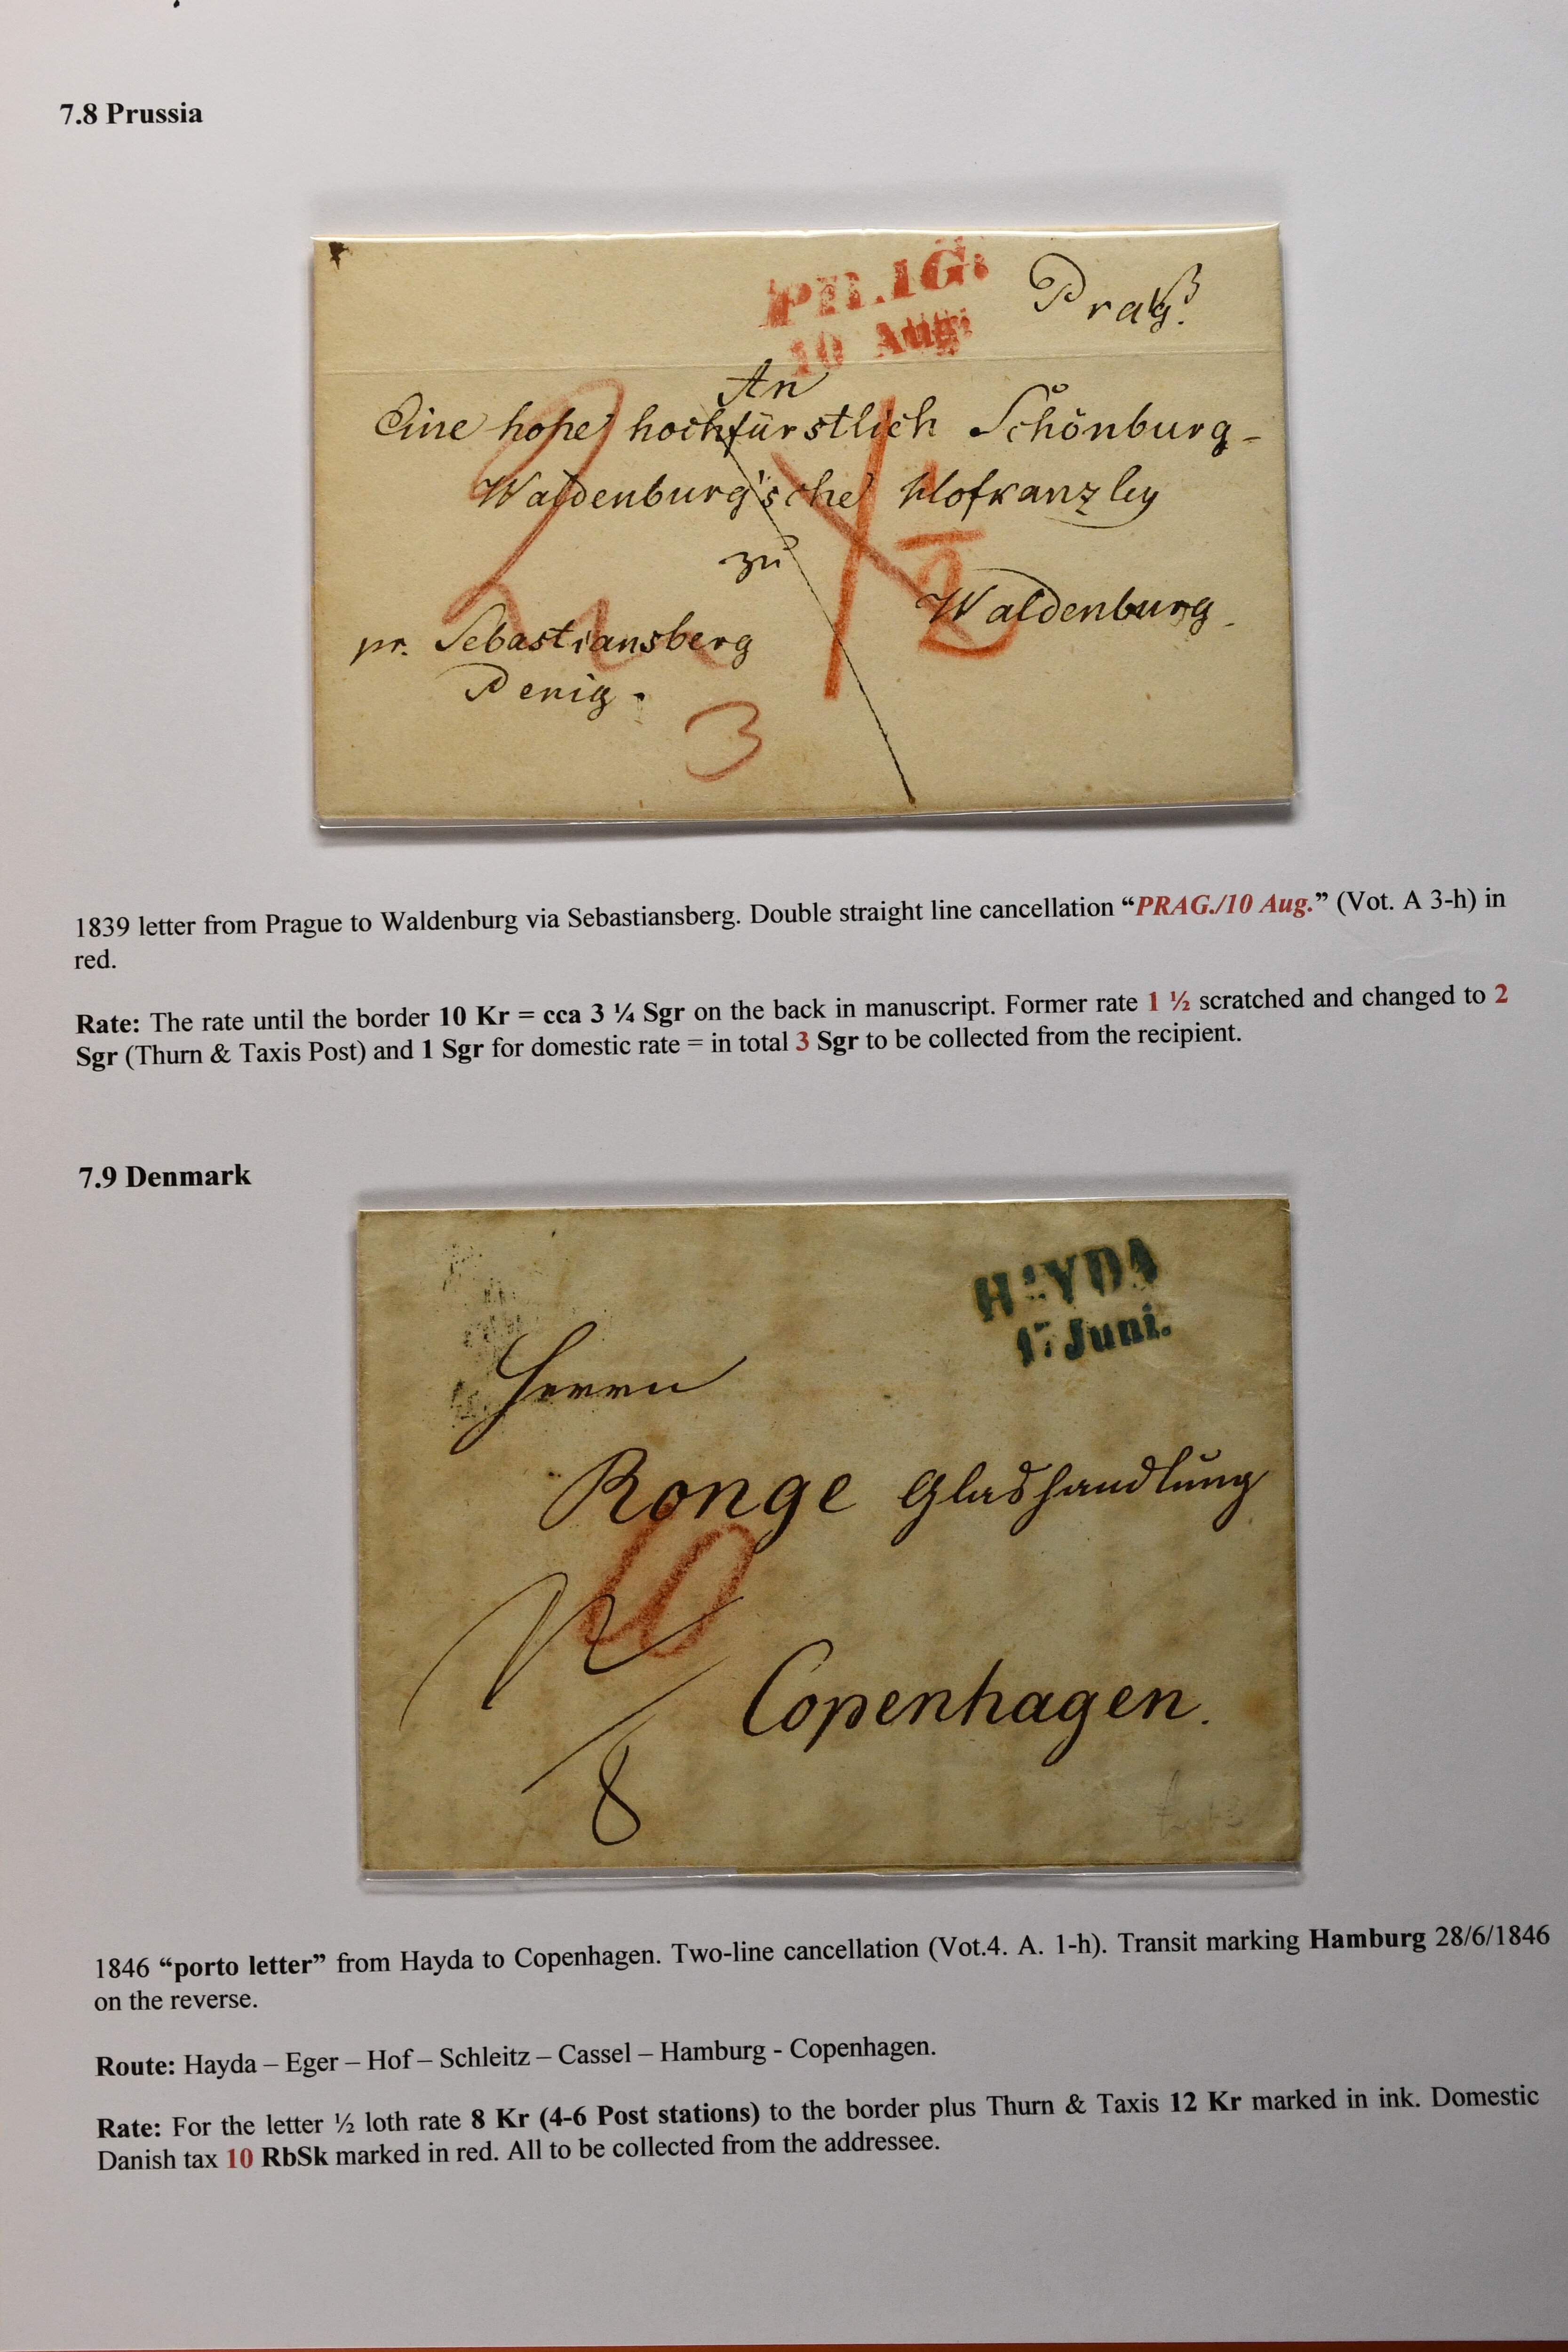 7.8 Prussia
PRAG.
10 Aug.
Prag.
An
Eine hohe hochfürstlich Schönburg-
Waldenburg'sche Hofkanzley
zu
Waldenburg.
pr. Sebastiansberg
Penig.
2
1
2
3
1839 letter from Prague to Waldenburg via Sebastiansberg. Double straight line cancellation “PRAG./10 Aug.” (Vot. A 3-h) in
red.
Rate: The rate until the border 10 Kr = cca 3 ¼ Sgr on the back in manuscript. Former rate 1 ½ scratched and changed to 2
Sgr (Thurn & Taxis Post) and 1 Sgr for domestic rate = in total 3 Sgr to be collected from the recipient.
7.9 Denmark
HAYDA
17 Juni.
Herrn
Ronge Glashandlung
10
12
8
Copenhagen.
1846 “porto letter” from Hayda to Copenhagen. Two-line cancellation (Vot.4. A. 1-h). Transit marking Hamburg 28/6/1846
on the reverse.
Route: Hayda – Eger – Hof – Schleitz – Cassel – Hamburg - Copenhagen.
Rate: For the letter ½ loth rate 8 Kr (4-6 Post stations) to the border plus Thurn & Taxis 12 Kr marked in ink. Domestic
Danish tax 10 RbSk marked in red. All to be collected from the addressee.